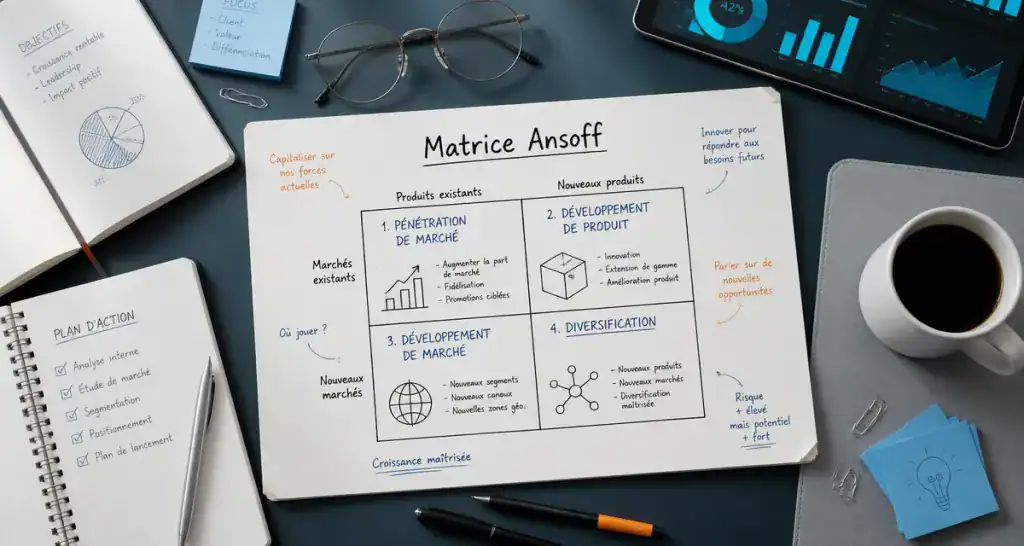 OBJECTIFS
- Croissance rentable
- Leadership
- Impact positif
FOCUS
- Client
- Valeur
- Différenciation
42%
Matrice Ansoff
Capitaliser sur
nos forces
actuelles
Innover pour
répondre aux
besoins futurs
Produits existants
Nouveaux produits
Marchés
existants
1. PÉNÉTRATION
DE MARCHÉ
- Augmenter la part
de marché
- Fidélisation
- Promotions ciblées
2. DÉVELOPPEMENT
DE PRODUIT
- Innovation
- Extension de gamme
- Amélioration produit
Parier sur de
nouvelles
opportunités
Où jouer ?
Nouveaux
marchés
3. DÉVELOPPEMENT
DE MARCHÉ
- Nouveaux segments
- Nouveaux canaux
- Nouvelles zones géo.
4. DIVERSIFICATION
- Nouveaux produits
- Nouveaux marchés
- Diversification
maîtrisée
Risque
+ élevé
mais potentiel
+ fort
Croissance maîtrisée
PLAN D'ACTION
Analyse interne
Étude de marché
Segmentation
Positionnement
Plan de lancement